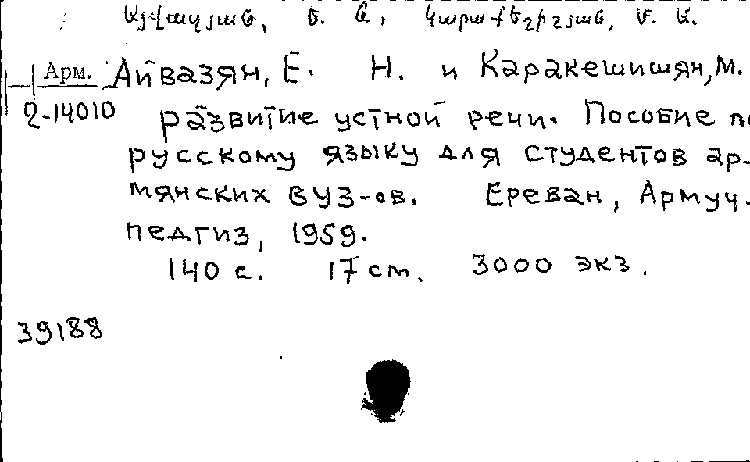 Այվազյան, Ե. Ն., Կարաքեշիշյան, Մ. Ա.
Арм. Айвазян, Е. Н. и Каракешишян, М.
2-14010 развитие устной речи. Пособие по
русскому языку для студентов ар-
мянских ВУЗ-ов. Ереван, Армуч-
педгиз, 1959.
140 с. 17 см. 3000 экз.
39188